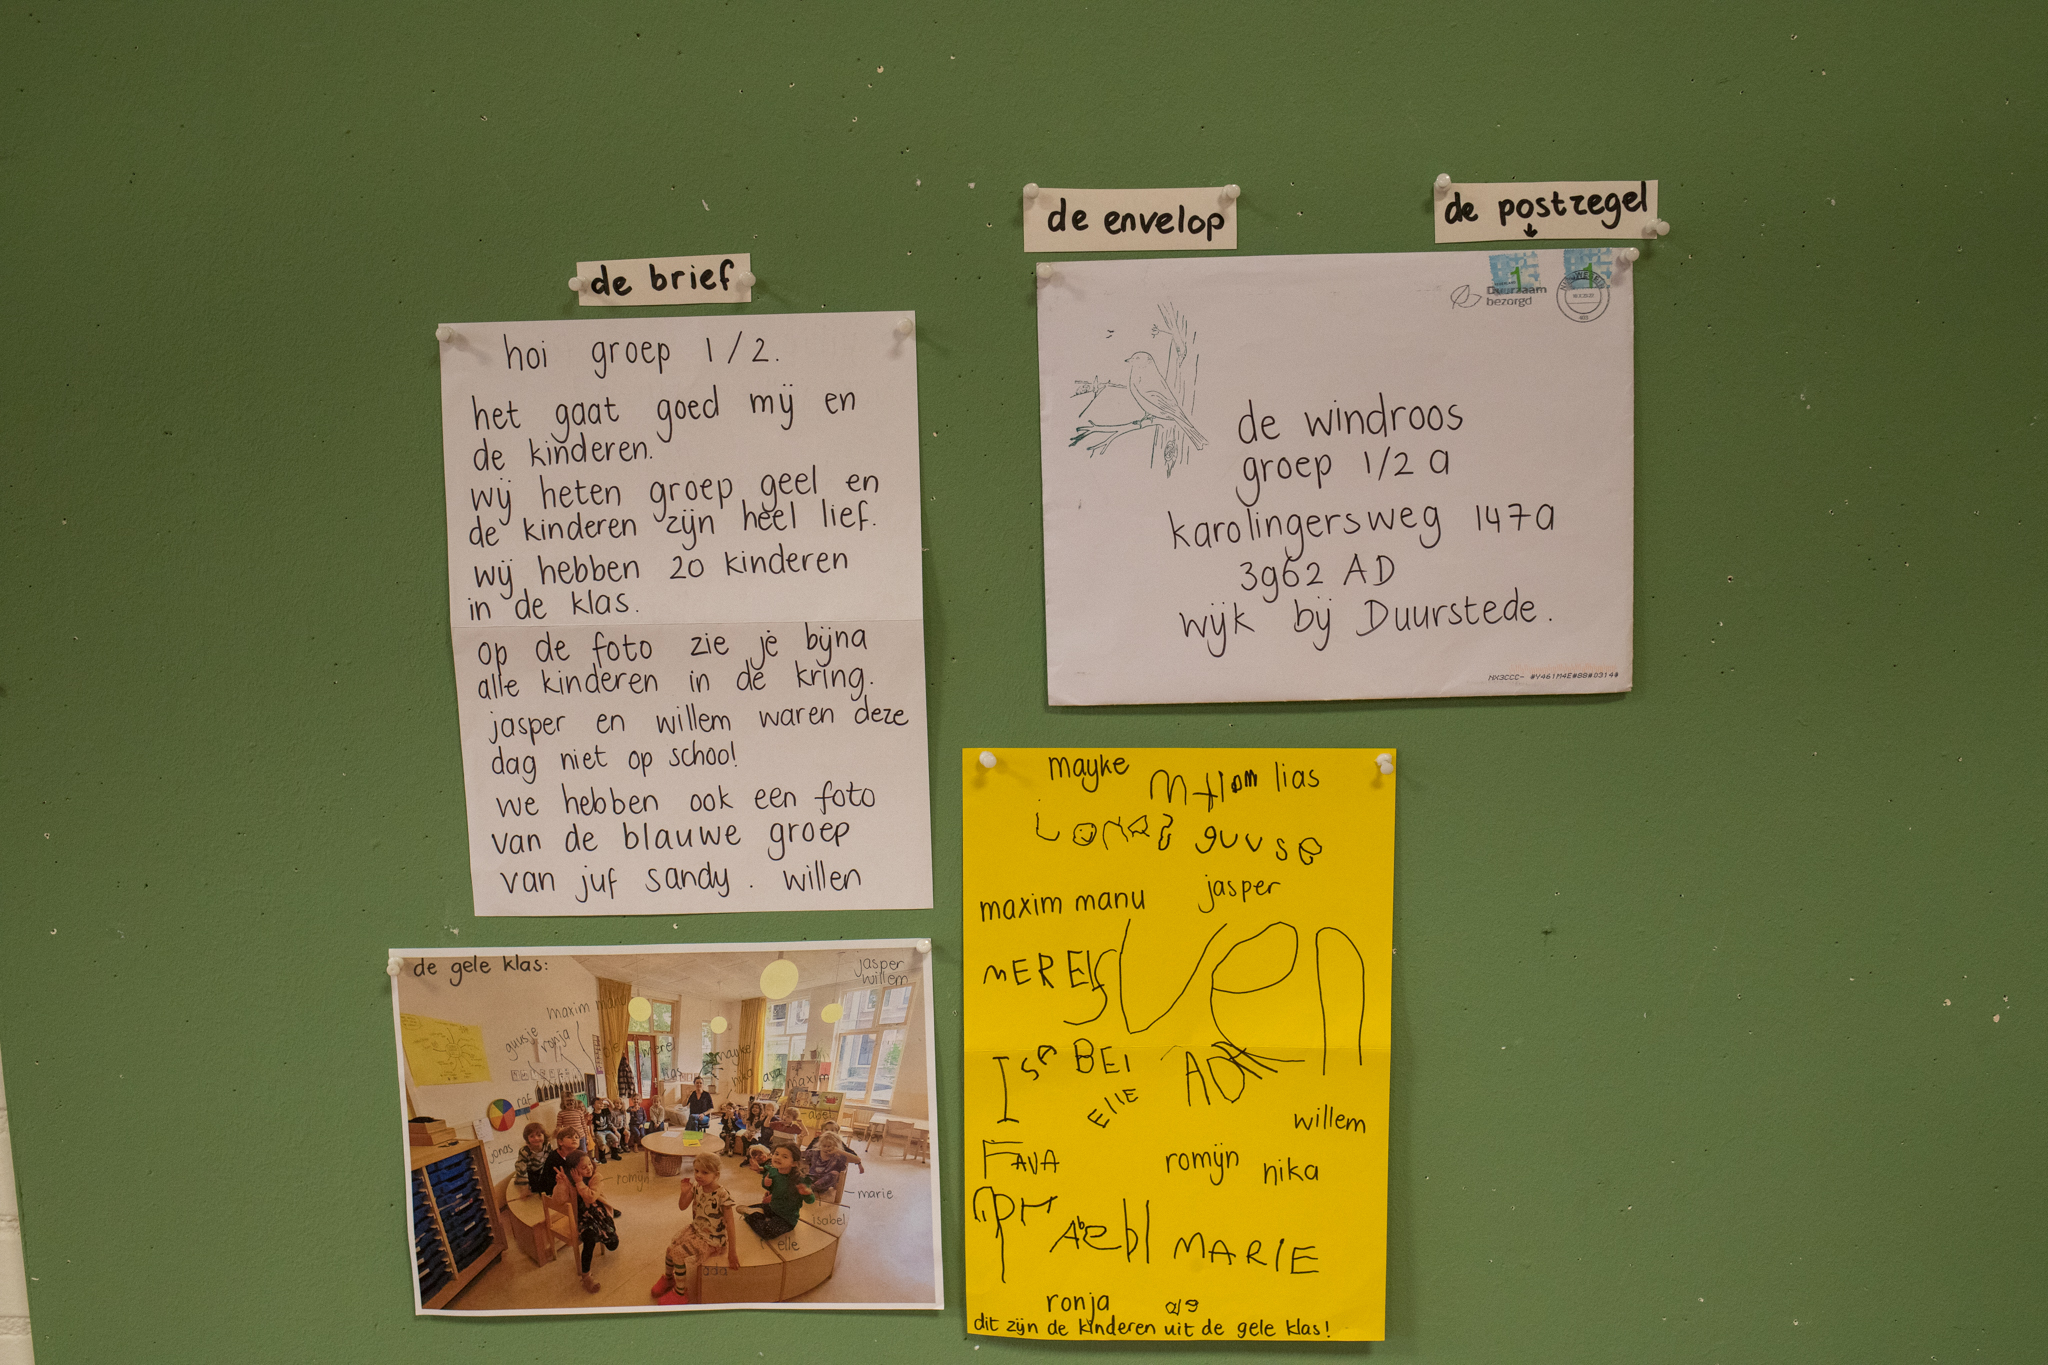 de brief
hoi groep 1/2.
het gaat goed mij en
de kinderen.
wij heten groep geel en
de kinderen zijn heel lief.
wij hebben 20 kinderen
in de klas.
op de foto zie je bijna
alle kinderen in de kring.
jasper en willem waren deze
dag niet op school
we hebben ook een foto
van de blauwe groep
van juf sandy. willen
de envelop
de postzegel
1
1
Duurzaam
bezorgd
de windroos
groep 1/2 a
karolingersweg 147a
3962 AD
wijk bij Duurstede.
de gele klas:
jasper
willem
maxim
guusje
ronja
merel
mayke
nika
ava
maxim
raf
abel
jonas
romijn
marie
isabel
elle
ada
mayke
lias
guuse
maxim manu
jasper
MEREL
sven
ISABEl
ADA
EllE
willem
AVA
romijn
nika
MARIE
ronja
dit zijn de kinderen uit de gele klas!